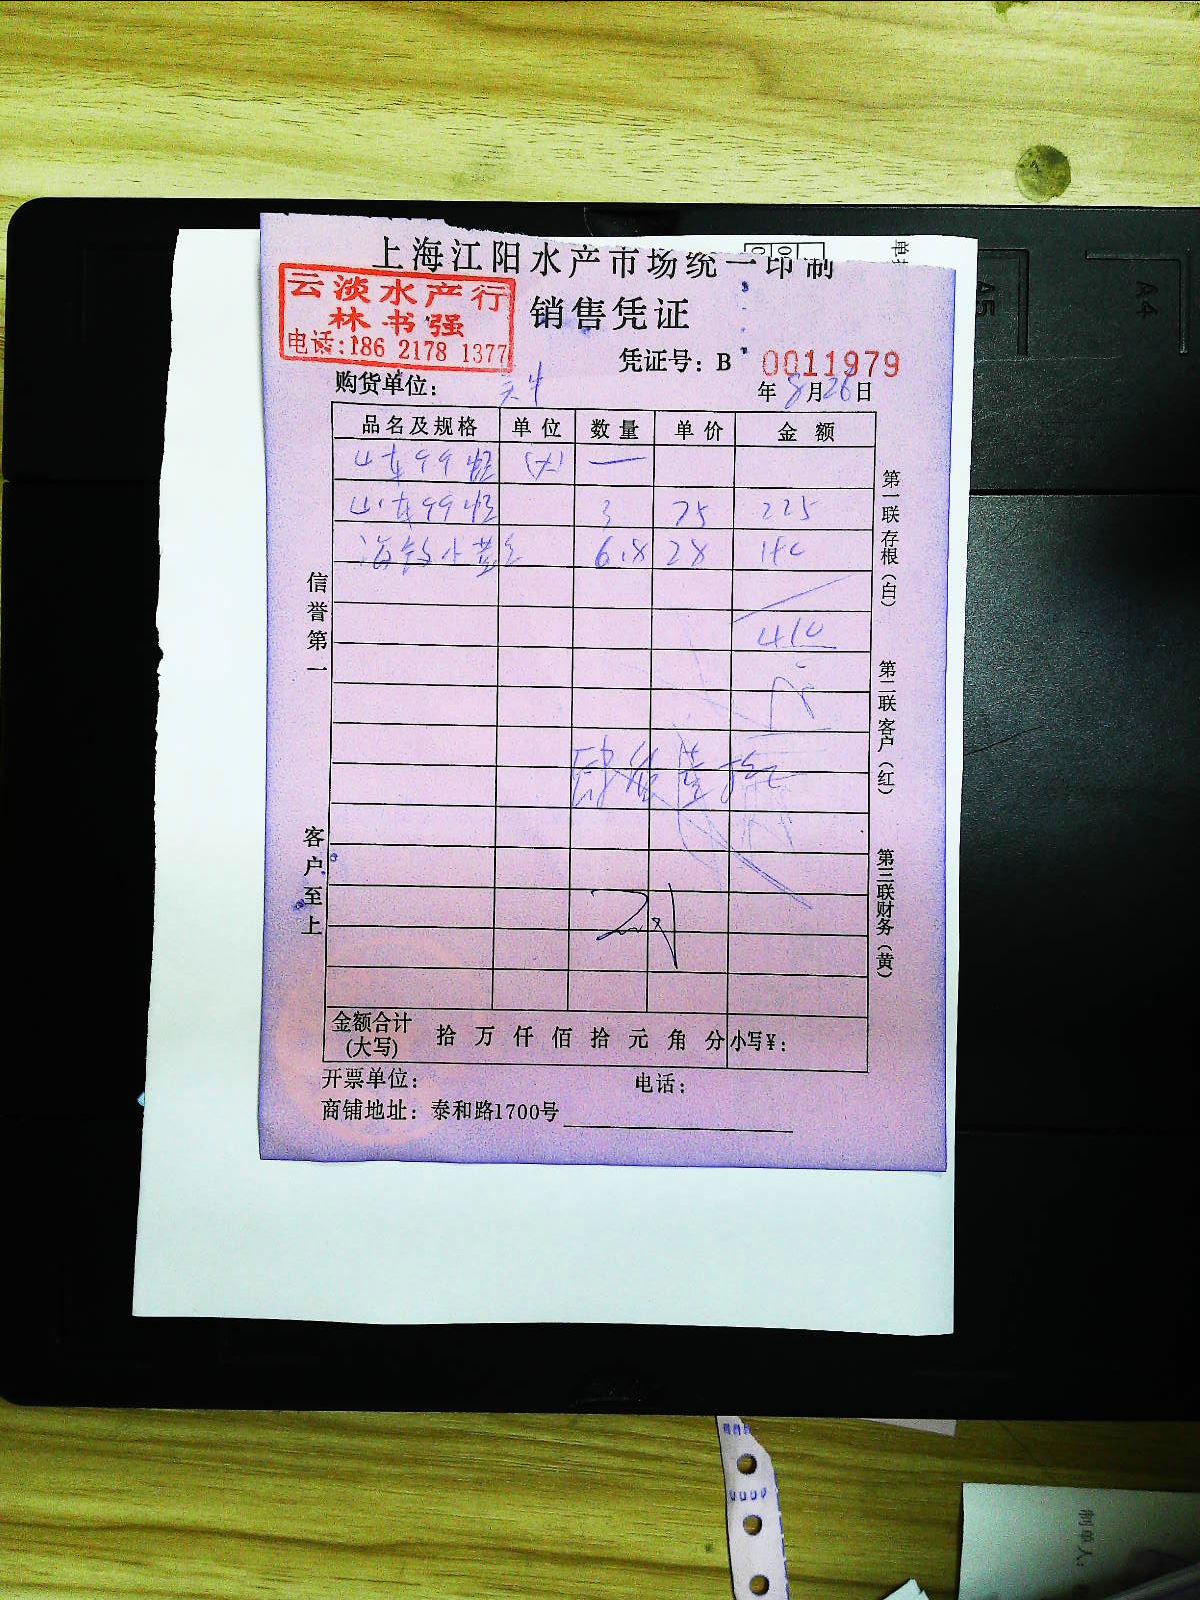 上海江阳水产市场统一印制
云淡水产行
林书强
电话:186 2178 1377
销售凭证
凭证号：B 0011979
购货单位：
年 8月26日
品名及规格 单位 数量 单价 金额
3 75 225
6.8 28 190
410
肆佰壹拾元
信誉第一
客户至上
第一联存根（白）
第二联客户（红）
第三联财务（黄）
金额合计(大写) 拾 万 仟 佰 拾 元 角 分 小写¥：
开票单位：
电话：
商铺地址：泰和路1700号
A5
A4
制单人：